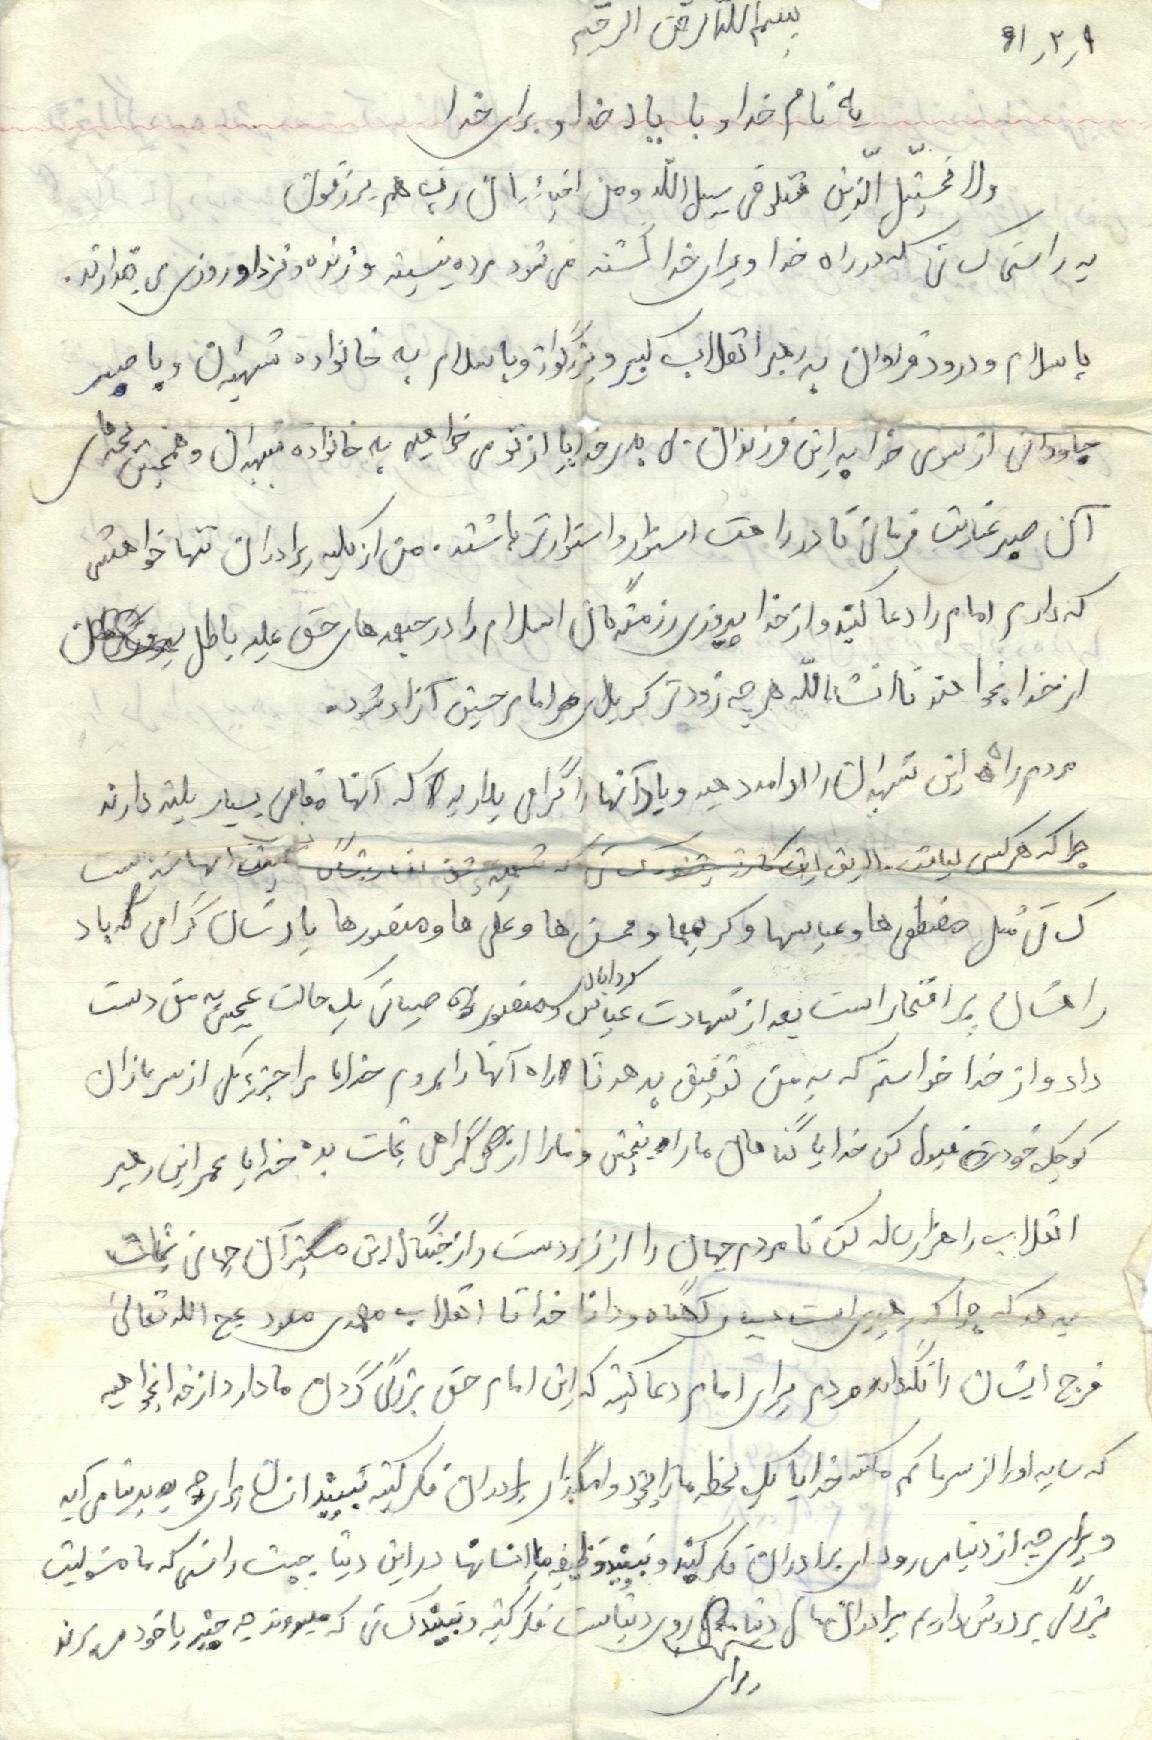 ۶۱٫۲٫۹
بسم الله الرحمن الرحیم
به نام خدا و با یاد خدا و برای خدا
ولا تحسبّن الّذین قتلو فی سبیل اللّه
به راستی کسانی که در راه خدا و برای خدا کشته می شود مرده نیستند و زنده و نزد او روزی می
با سلام و درود فراوان به رهبر انقلاب کبیر و بزرگوار و با سلام به خانواده شهیدان و با صبر
جاودانی از سوی خدا به این فرزندان خدایا از تو می خواهیم به خانواده شهیدان و همچنین بچه های
آن صبر عنایت فرمائی تا در راهت استوار و استوارتر باشند. من از کلیه برادران تنها خواهشی
که دارم امام را دعا کنید و از خدا پیروزی رزمندگان اسلام را در جبهه های حق علیه باطل
از خدا بخواهند تا انشاءاللّه هر چه زودتر کربلای امام حسین آزاد شود.
مردم راه این شهیدان را ادامه دهید و یاد آنها را گرامی بدارید که آنها مقامی بسیار بلند دارند
چرا که هر کسی لیاقت
کسانی مثل مصطفی ها و عباسها و کریمها و محسن ها و علی ها و منصورها یادشان گرامی که یاد
راهشان پر افتخار است بعد از شهادت عباس و منصور یک حالت عجیبی به من دست
داد و از خدا خواستم که به من توفیق بدهد تا راه آنها را بروم خدایا مرا جزء یکی از سربازان
کوچک خودت قبول کن خدایا گناهان ما را ببخش و ما را از گمراهی نجات بده خدایا عمر این رهبر
انقلاب را هزار ساله کن تا مردم جهان را از زیر دست و از چنگال این مستکبران جهانی نجات
بدهد که چرا که رهبری است خدا تا انقلاب مهدی معود عج الله تعالی
فرج ایشان را نگهدار مردم برای امام دعا کنید که این امام حق بزرگی گردن ما دارد از خدا بخواهید
که سایه او را از سر ما کم نکند خدایا یک لحظه ما را بخود وامگذار ای برادران فکر کنید ببینید انسان برای چه به دنیا می آید
و برای چه از دنیا می رود ای برادران فکر کنید و ببینید وظیفه ما انسانها در این دنیا چیست راستی که ما مسئولیت
بزرگی بر دوش داریم برادران فکر کنید و ببینید کسانی که میروند چه چیز با خود می برند
برای